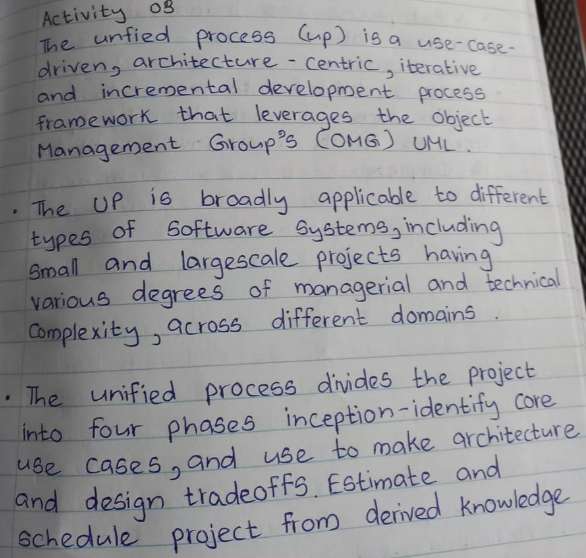 Activity 08
The unfied process (up) is a use-case-
driven, architecture - centric, iterative
and incremental development process
framework that leverages the Object
Management Group's (OMG) UML.
• The UP is broadly applicable to different
types of software systems, including
small and largescale projects having
various degrees of managerial and technical
complexity, across different domains.
• The unified process divides the project
into four phases inception-identify core
use cases, and use to make architecture
and design tradeoffs. Estimate and
schedule project from derived knowledge